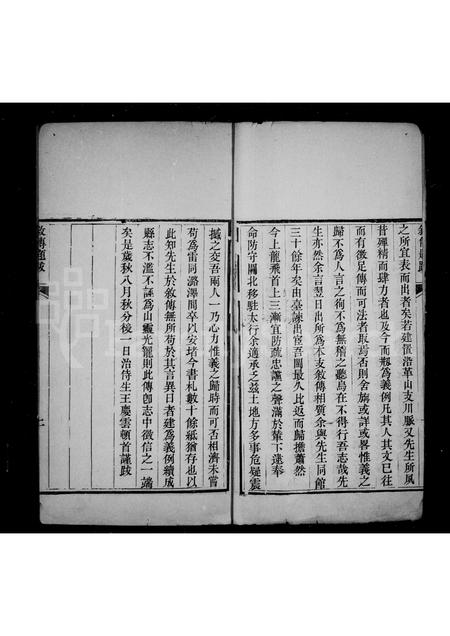 之所宜表而出者矣若建置沿革山支川脈又先生所夙
昔殫精而肆力者也及今而觀爲義例凡其人其文已往
而有徵足傳而可法者取焉否則舍旃或詳或畧惟義之
歸不爲人言之徇不爲無稽之聽烏在不得行吾志哉先
生亦然余言翌日出所爲本支敘傳相質余與先生同館
三十餘年矣由臺諫出宦吾閩最久比返而歸擔蕭然
今上龍飛首上三漸宜防疏忠讜之聲滿於輦下遠奉
命防守關北移駐太行余適承之茲土地方多事危疑震
撼之交吾兩人一乃心力惟義之歸時而可否相濟未嘗
苟爲雷同潞澤間卒以安堵今書札數十餘紙猶存也以
此知先生於敘傳無所苟於其言異日者建爲義例續成
縣志不濫不誣爲山靈光寵則此傳卽志中徵信之一端
矣是歲秋八月秋分後一日治侍生王慶雲頓首謹跋
敘傳題跋
七